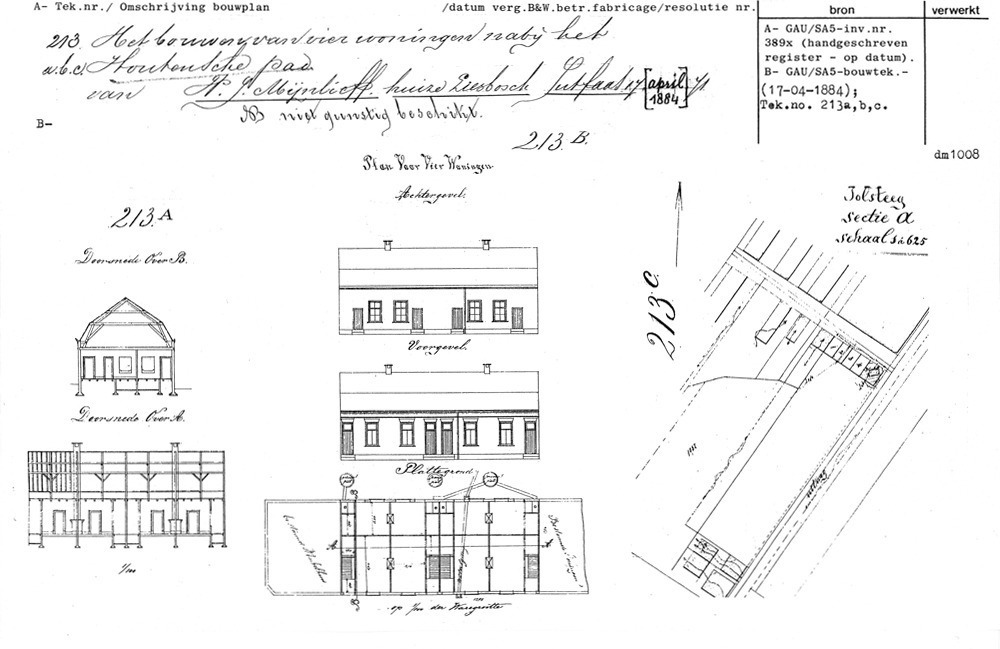 A- Tek.nr./ Omschrijving bouwplan /datum verg.B&W.betr.fabricage/resolutie nr.
bron
verwerkt
213. Het bouwen van vier woningen nabij het
a.b.c. Houtensche pad.
van P. J. Mijnlieff. huize Liesbosch Jutfaas 17 [april 1884] 7/1
NB niet gunstig beschikt.
A- GAU/SA5-inv.nr.
389x (handgeschreven
register - op datum).
B- GAU/SA5-bouwtek.-
(17-04-1884);
Tek.no. 213a,b,c.
B-
dm1008
213.B.
Plan Voor Vier Woningen.
Achtergevel.
213.A
Doorsnede Over B.
Voorgevel.
Doorsnede Over A.
Plattegrond
1/m
op 1/m der Waregrootte
213.C.
Tolsteeg
sectie A
schaal 1 à 625